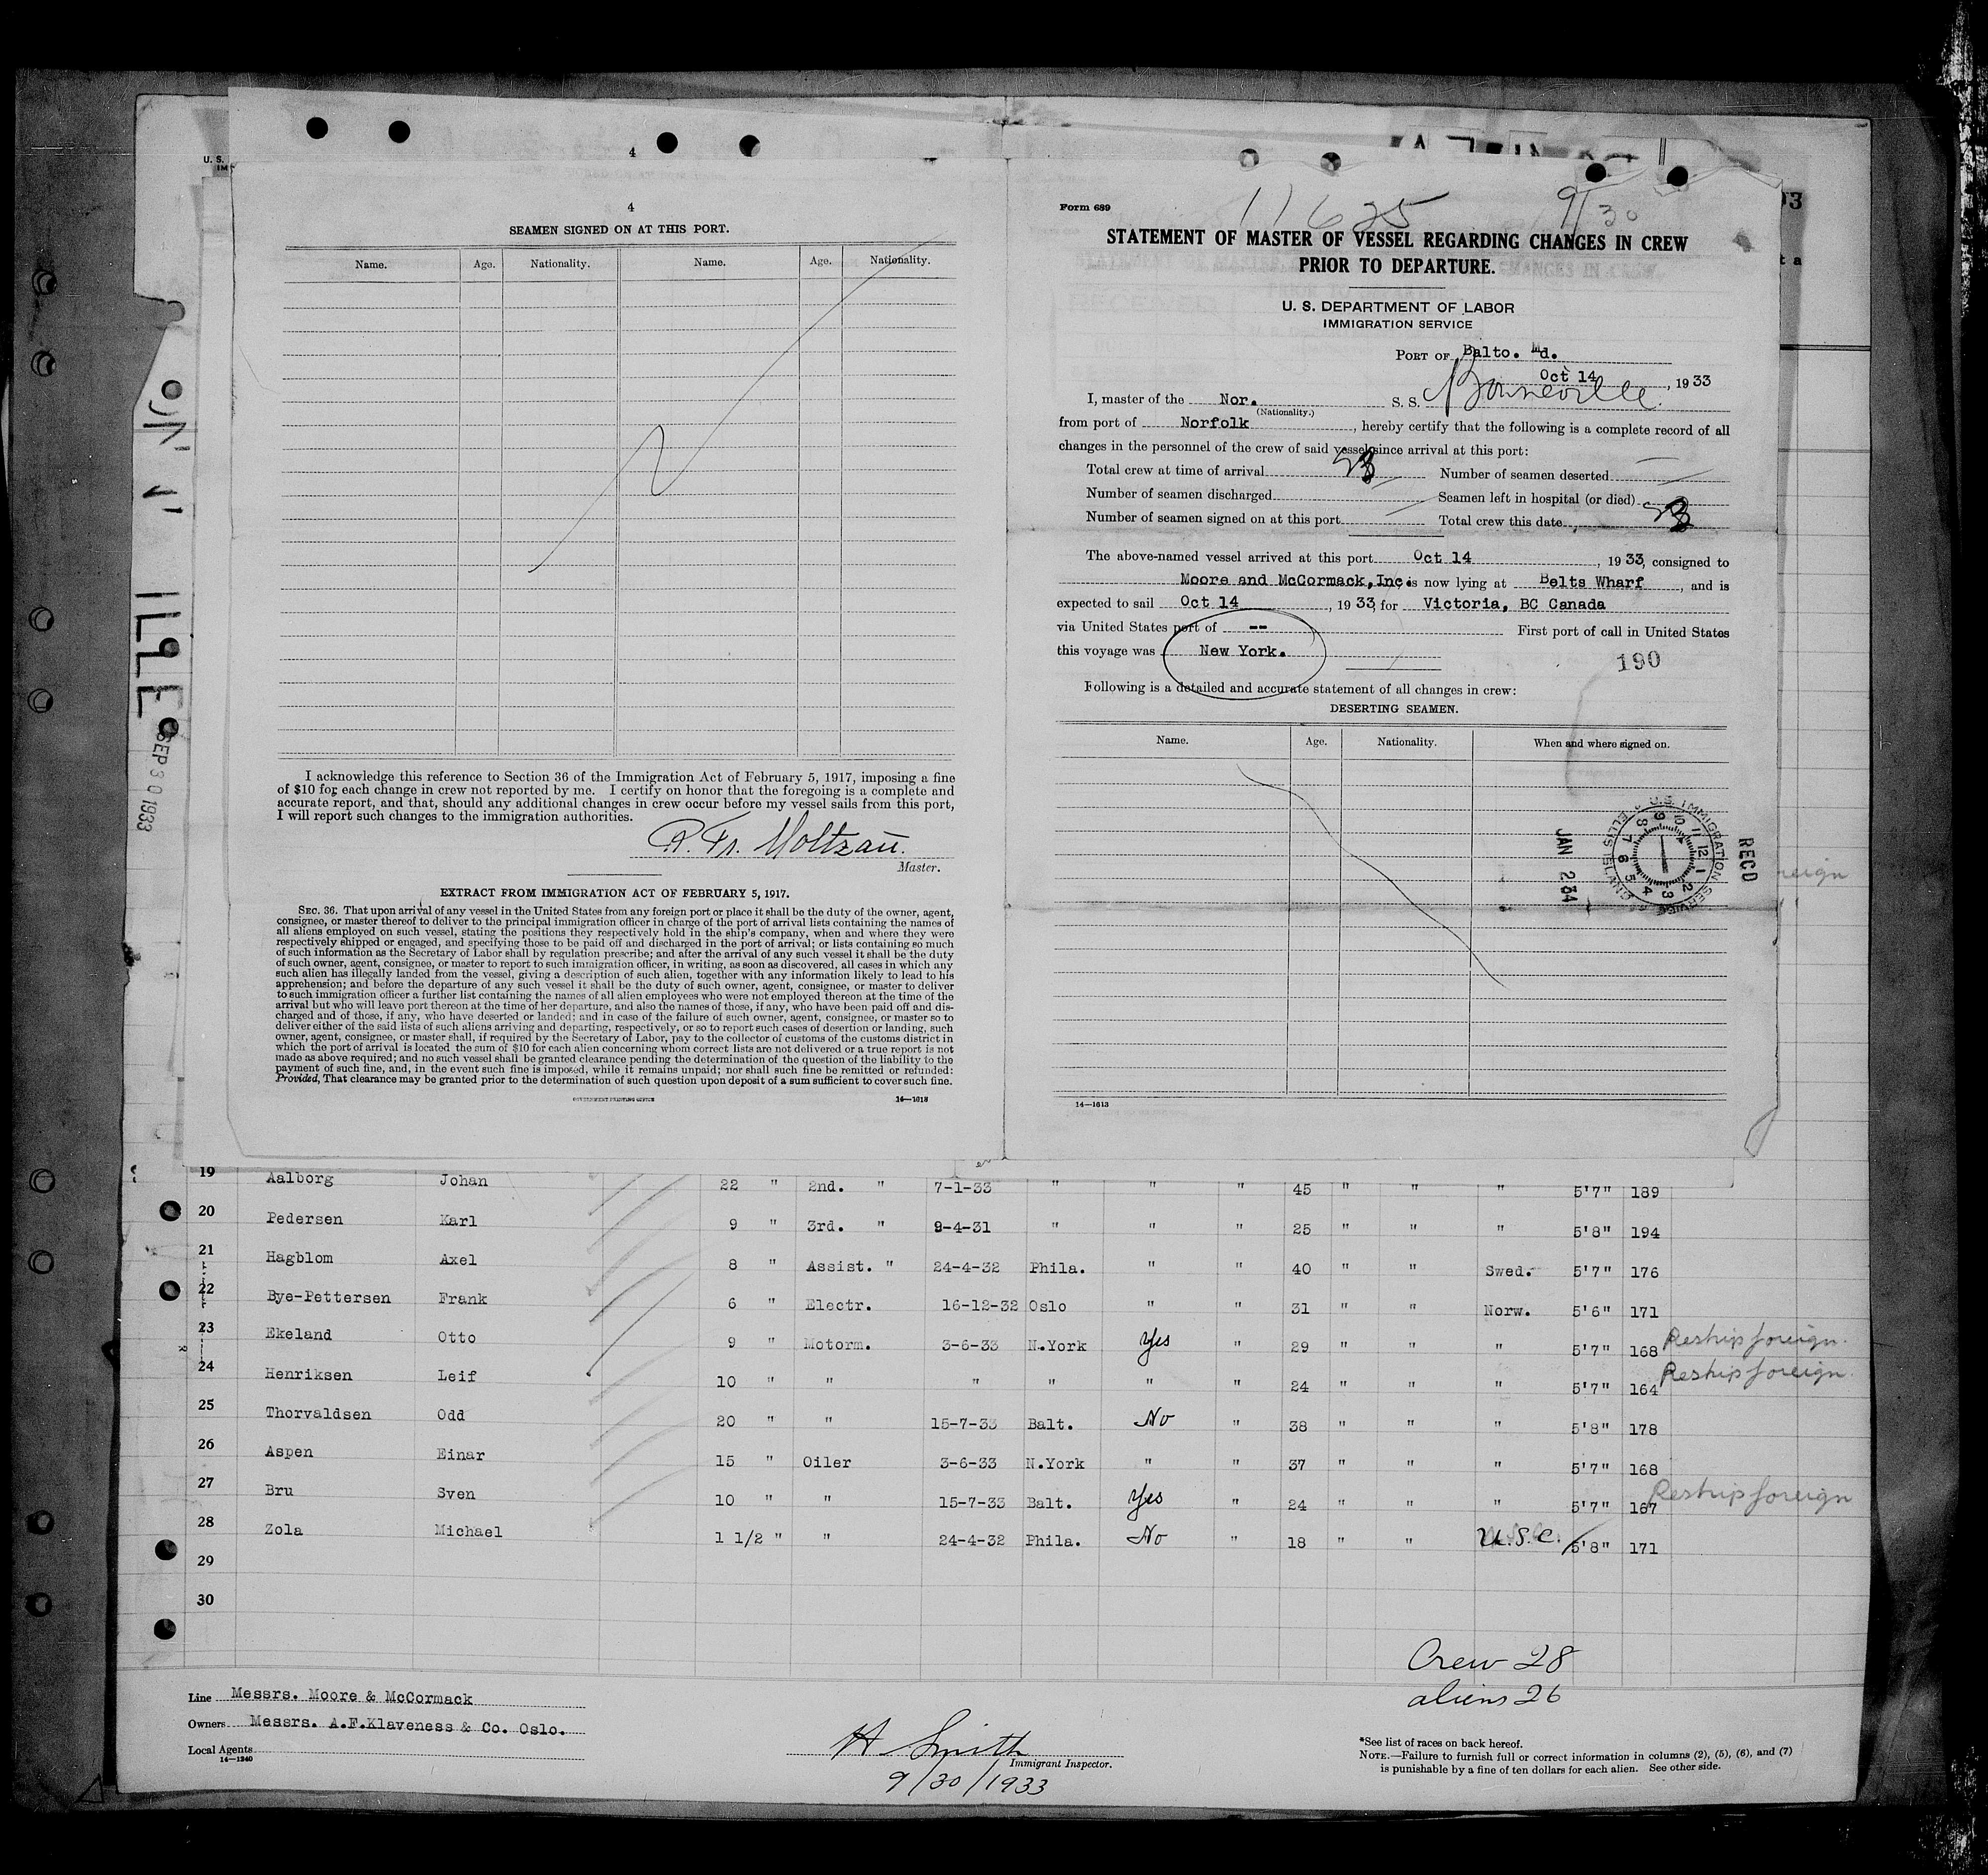 4
4
SEAMEN SIGNED ON AT THIS PORT.
Name. Age. Nationality. Name. Age. Nationality.
I acknowledge this reference to Section 36 of the Immigration Act of February 5, 1917, imposing a fine
of $10 for each change in crew not reported by me. I certify on honor that the foregoing is a complete and
accurate report, and that, should any additional changes in crew occur before my vessel sails from this port,
I will report such changes to the immigration authorities.
R. Fr. Moltzau.
Master.
EXTRACT FROM IMMIGRATION ACT OF FEBRUARY 5, 1917.
SEC. 36. That upon arrival of any vessel in the United States from any foreign port or place it shall be the duty of the owner, agent,
consignee, or master thereof to deliver to the principal immigration officer in charge of the port of arrival lists containing the names of
all aliens employed on such vessel, stating the positions they respectively hold in the ship's company, when and where they were
respectively shipped or engaged, and specifying those to be paid off and discharged in the port of arrival; or lists containing so much
of such information as the Secretary of Labor shall by regulation prescribe; and after the arrival of any such vessel it shall be the duty
of such owner, agent, consignee, or master to report to such immigration officer, in writing, as soon as discovered, all cases in which any
such alien has illegally landed from the vessel, giving a description of such alien, together with any information likely to lead to his
apprehension; and before the departure of any such vessel it shall be the duty of such owner, agent, consignee, or master to deliver
to such immigration officer a further list containing the names of all alien employees who were not employed thereon at the time of the
arrival but who will leave port thereon at the time of her departure, and also the names of those, if any, who have been paid off and dis-
charged and of those, if any, who have deserted or landed; and in case of the failure of such owner, agent, consignee, or master so to
deliver either of the said lists of such aliens arriving and departing, respectively, or so to report such cases of desertion or landing, such
owner, agent, consignee, or master shall, if required by the Secretary of Labor, pay to the collector of customs of the customs district in
which the port of arrival is located the sum of $10 for each alien concerning whom correct lists are not delivered or a true report is not
made as above required; and no such vessel shall be granted clearance pending the determination of the question of the liability to the
payment of such fine, and, in the event such fine is imposed, while it remains unpaid; nor shall such fine be remitted or refunded:
Provided, That clearance may be granted prior to the determination of such question upon deposit of a sum sufficient to cover such fine.
GOVERNMENT PRINTING OFFICE 14—1613
Form 689
11625 9/30
STATEMENT OF MASTER OF VESSEL REGARDING CHANGES IN CREW
PRIOR TO DEPARTURE.
U. S. DEPARTMENT OF LABOR
IMMIGRATION SERVICE
PORT OF Balto. Md.
Oct 14, 1933
I, master of the Nor. S. S. Bonneville.
(Nationality.)
from port of Norfolk, hereby certify that the following is a complete record of all
changes in the personnel of the crew of said vessel since arrival at this port:
Total crew at time of arrival Number of seamen deserted
Number of seamen discharged Seamen left in hospital (or died)
Number of seamen signed on at this port Total crew this date
The above-named vessel arrived at this port Oct 14, 1933, consigned to
Moore and McCormack, Inc. is now lying at Belts Wharf, and is
expected to sail Oct 14, 1933, for Victoria, BC Canada
via United States port of -- First port of call in United States
this voyage was New York.
190
Following is a detailed and accurate statement of all changes in crew:
DESERTING SEAMEN.
Name. Age. Nationality. When and where signed on.
REC'D
U.S. IMMIGRATION SERVICE
ELLIS ISLAND
JAN 2 34
14—1613
SEP 30 1933
19 Aalborg Johan 22 " 2nd. " 7-1-33 " " " 45 " " " 5'7" 189
20 Pedersen Karl 9 " 3rd. " 9-4-31 " " " 25 " " " 5'8" 194
21 Hagblom Axel 8 " Assist. " 24-4-32 Phila. " " 40 " " Swed. 5'7" 176
22 Bye-Pettersen Frank 6 " Electr. 16-12-32 Oslo " " 31 " " Norw. 5'6" 171
23 Ekeland Otto 9 " Motorm. 3-6-33 N.York Yes " 29 " " " 5'7" 168 Reship foreign.
24 Henriksen Leif 10 " " " " " " 24 " " " 5'7" 164 Reship foreign.
25 Thorvaldsen Odd 20 " " 15-7-33 Balt. No " 38 " " " 5'8" 178
26 Aspen Einar 15 " Oiler 3-6-33 N.York " " 37 " " " 5'7" 168
27 Bru Sven 10 " " 15-7-33 Balt. Yes " 24 " " " 5'7" 167 Reship foreign
28 Zola Michael 1 1/2 " " 24-4-32 Phila. No " 18 " " U.S.C. 5'8" 171
29
30
Crew 28
aliens 26
Line Messrs. Moore & McCormack
Owners Messrs. A.F.Klaveness & Co. Oslo.
Local Agents
14—1240
H Smith
Immigrant Inspector.
9/30/1933
*See list of races on back hereof.
NOTE.—Failure to furnish full or correct information in columns (2), (5), (6), and (7)
is punishable by a fine of ten dollars for each alien. See other side.